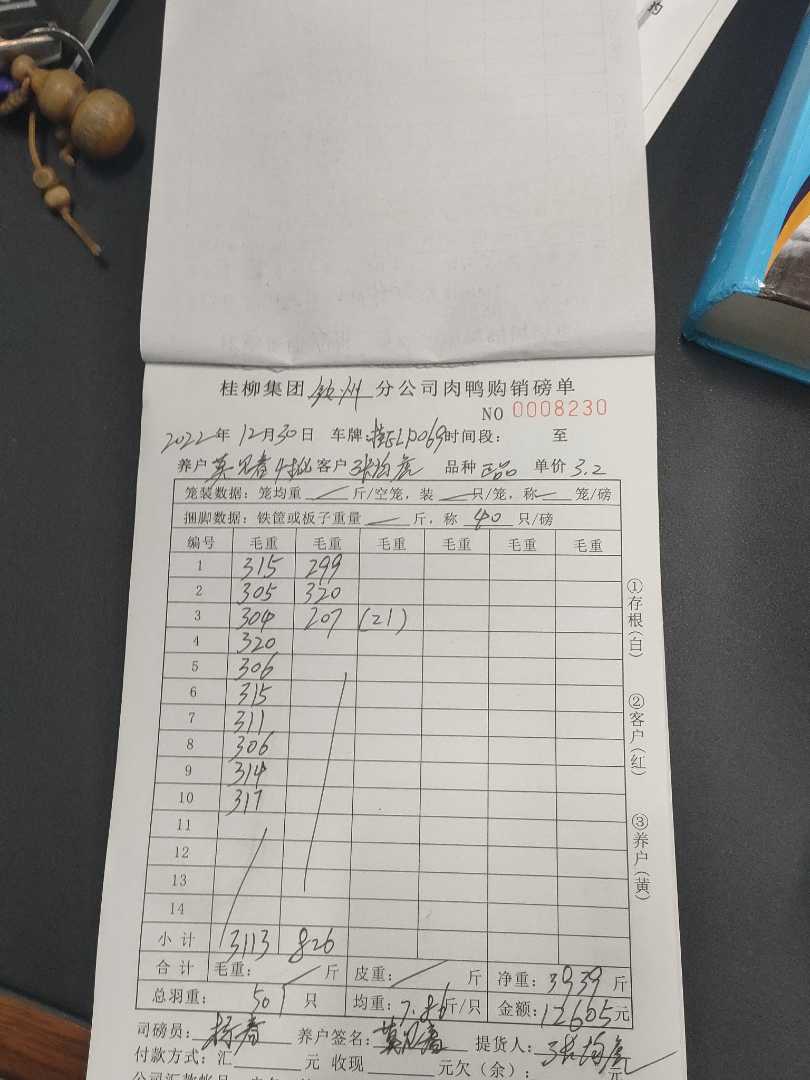 桂柳集团 钦州 分公司肉鸭购销磅单
NO 0008230
2022年 12月30日 车牌: 069 时间段: 至
养户 客户 张均 品种 正品 单价 3.2
笼装数据: 笼均重 斤/空笼, 装 只/笼, 称 笼/磅
捆脚数据: 铁筐或板子重量 斤, 称 40 只/磅
编号 毛重 毛重 毛重 毛重 毛重 毛重
1 315 299
2 305 320
3 304 207 (21)
4 320
5 306
6 315
7 311
8 306
9 314
10 317
11
12
13
14
小计 3113 826
合计 毛重: 斤 皮重: 斤 净重: 3939 斤
总羽重: 501 只 均重: 7.86 斤/只 金额: 12605元
司磅员: 杨春 养户签名: 提货人: 张均
付款方式: 汇 元 收现 元欠(余): 元
①存根(白)
②客户(红)
③养户(黄)